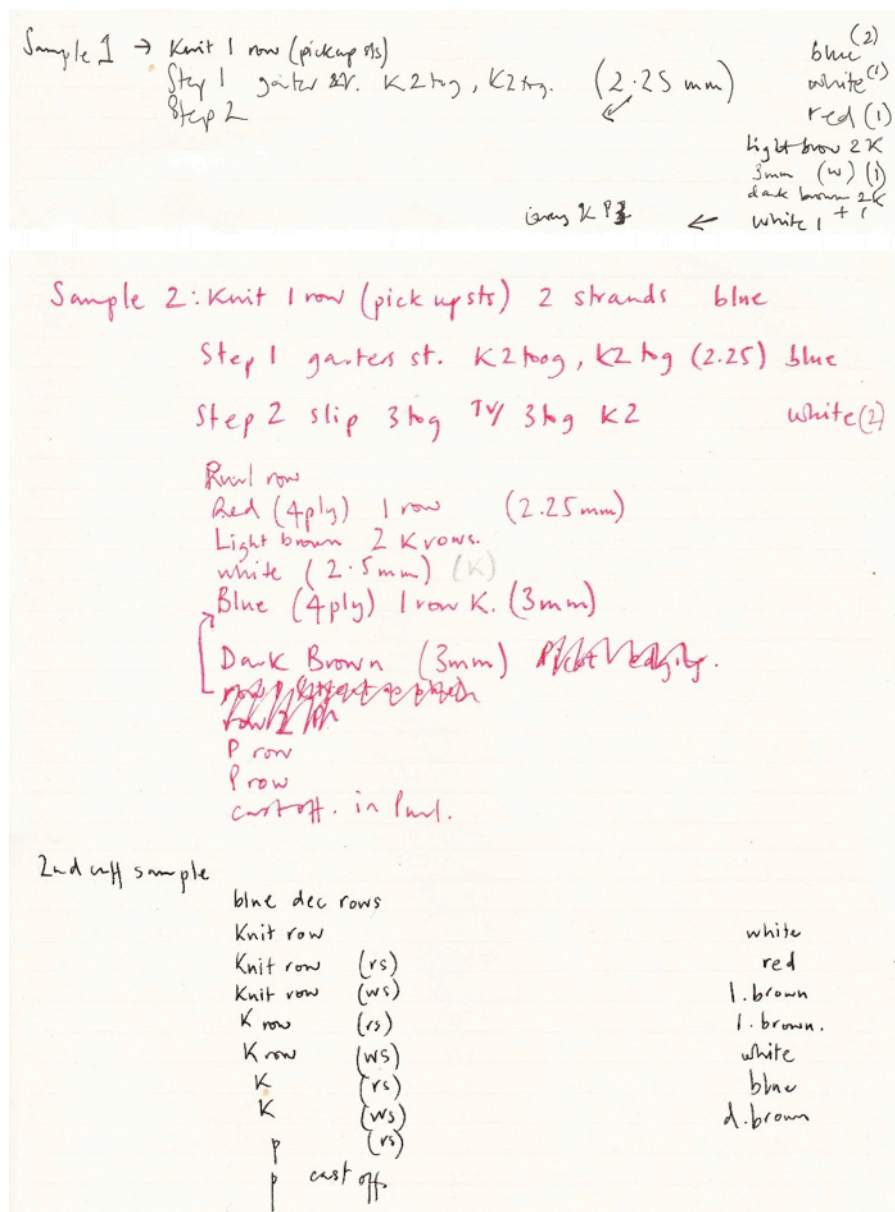 Sample 1 → Knit 1 row (pickup sts) blue (2)
Step 1 garter st. K2tog, K2tog. (2.25 mm) white (1)
Step 2 ↙ red (1)
Light brow 2K
3mm (w) (1)
dark brown 2K
K P ← white 1 + 1
Sample 2: Knit 1 row (pick up sts) 2 strands blue
Step 1 garters st. K2toog, K2tog (2.25) blue
Step 2 slip 3tog 3tog K2 white (2)
Purl row
Red (4ply) 1 row (2.25mm)
Light brown 2 K rows.
white (2.5mm) (K)
Blue (4ply) 1 row K. (3mm)
Dark Brown (3mm) Picot edging.
P row
P row
cast off. in Purl.
2nd cuff sample
blue dec rows
Knit row white
Knit row (rs) red
Knit row (ws) l.brown
K row (rs) l.brown.
K row (ws) white
K (rs) blue
K (ws) d.brown
P (rs)
P cast off.